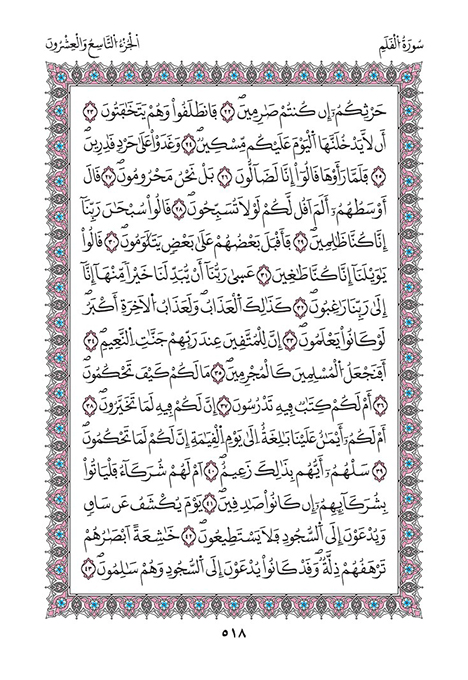 سُورَةُ الْقَلَمِ
اَلْجُزْءُ التَّاسِعُ وَالْعِشْرُونَ
حَرْثِكُمُۥٓ إِن كُنتُمْ صَٰرِمِينَۖ ٢٢ فَانطَلَقُواْ وَهُمْ يَتَخَٰفَتُونَ ٢٣
أَن لَّا يَدْخُلَنَّهَا اَلْيَوْمَ عَلَيْكُم مِّسْكِينٞۖ ٢٤ وَغَدَوْاْ عَلَىٰ حَرْدٖ قَٰدِرِينَۖ
٢٥ فَلَمَّا رَأَوْهَا قَالُوٓاْ إِنَّا لَضَآلُّونَ ٢٦ بَلْ نَحْنُ مَحْرُومُونَۖ ٢٧ قَالَ
أَوْسَطُهُمُۥٓ أَلَمَ اَقُل لَّكُمْ لَوْلَا تُسَبِّحُونَۖ ٢٨ قَالُواْ سُبْحَٰنَ رَبِّنَآ
إِنَّا كُنَّا ظَٰلِمِينَۖ ٢٩ فَأَقْبَلَ بَعْضُهُمْ عَلَىٰ بَعْضٖ يَتَلَٰوَمُونَۖ ٣٠ قَالُواْ
يَٰوَيْلَنَآ إِنَّا كُنَّا طَٰغِينَۖ ٣١ عَسَىٰ رَبُّنَآ أَنْ يُّبَدِّلَنَا خَيْراٗ مِّنْهَآ إِنَّآ
إِلَىٰ رَبِّنَا رَٰغِبُونَۖ ٣٢ كَذَٰلِكَ اَلْعَذَابُۖ وَلَعَذَابُ اُلَاخِرَةِ أَكْبَرُۖ
لَوْ كَانُواْ يَعْلَمُونَۖ ٣٣ إِنَّ لِلْمُتَّقِينَ عِندَ رَبِّهِمْ جَنَّٰتِ اِلنَّعِيمِۖ ٣٤
أَفَنَجْعَلُ اُلْمُسْلِمِينَ كَالْمُجْرِمِينَۖ ٣٥ مَا لَكُمْ كَيْفَ تَحْكُمُونَۖ
٣٦ أَمْ لَكُمْ كِتَٰبٞ فِيهِ تَدْرُسُونَ ٣٧ إِنَّ لَكُمْ فِيهِ لَمَا تَخَيَّرُونَۖ ٣٨
أَمْ لَكُمُۥٓ أَيْمَٰنٌ عَلَيْنَا بَٰلِغَةٌ اِلَىٰ يَوْمِ اِلْقِيَٰمَةِ إِنَّ لَكُمْ لَمَا تَحْكُمُونَۖ
٣٩ سَلْهُمُۥٓ أَيُّهُم بِذَٰلِكَ زَعِيمٌۖ ٤٠ اَمْ لَهُمْ شُرَكَآءُ فَلْيَاتُواْ
بِشُرَكَآئِهِمُۥٓ إِن كَانُواْ صَٰدِقِينَۖ ٤١ يَوْمَ يُكْشَفُ عَن سَاقٖ
وَيُدْعَوْنَ إِلَى اَلسُّجُودِ فَلَا يَسْتَطِيعُونَۖ ٤٢ خَٰشِعَةً اَبْصَٰرُهُمْ
تَرْهَقُهُمْ ذِلَّةٞۖ وَقَدْ كَانُواْ يُدْعَوْنَ إِلَى اَلسُّجُودِ وَهُمْ سَٰلِمُونَۖ ٤٣
٥١٨